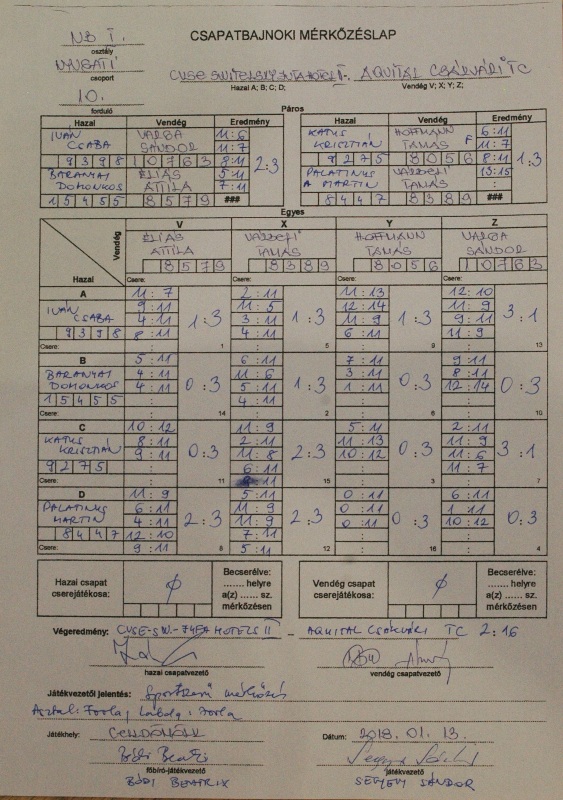 NB I.
osztály
CSAPATBAJNOKI MÉRKŐZÉSLAP
NYUGATI
csoport
AQUITAL CSÁKVÁRI TC
Hazai A; B; C; D;
Vendég V; X; Y; Z;
10.
forduló
Páros
Hazai Vendég Eredmény
IVÁN CSABA VARGA SÁNDOR 11:6
11:7
9398 10763 8:11 2:3
BARANYAI DOMONKOS ÉLIÁS ATTILA 5:11
7:11
15455 8579 ###
Hazai Vendég Eredmény
KATUS KRISZTIÁN HOFFMANN TAMÁS F 6:11
11:7
9275 8056 8:11 1:3
PALATINUS MARTIN TAMÁS 13:15
:
8447 8389 ###
Egyes
Vendég
Hazai
V X Y Z
ÉLIÁS ATTILA TAMÁS HOFFMANN TAMÁS VARGA SÁNDOR
8579 8389 8056 10763
Csere: Csere: Csere: Csere:
A
IVÁN CSABA
9398
Csere:
11:7 2:11 11:13 12:10
9:11 11:5 12:14 11:9
4:11 3:11 11:9 9:11
8:11 4:11 6:11 11:9
1:3 1:3 1:3 3:1
1 5 9 13
B
BARANYAI DOMONKOS
15455
Csere:
5:11 6:11 7:11 9:11
4:11 11:6 3:11 8:11
4:11 5:11 1:11 12:14
: 4:11 : :
0:3 1:3 0:3 0:3
14 2 6 10
C
KATUS KRISZTIÁN
9275
Csere:
10:12 11:9 5:11 2:11
8:11 2:11 11:13 11:9
9:11 11:8 10:12 11:6
: 6:11 : 11:7
0:3 2:3 0:3 3:1
11 15 3 7
D
PALATINUS MARTIN
8447
Csere:
11:9 5:11 0:11 6:11
6:11 11:9 0:11 1:11
4:11 11:9 0:11 10:12
12:10 7:11 : :
9:11 5:11 : :
2:3 2:3 0:3 0:3
8 12 16 4
Hazai csapat cserejátékosa: ϕ
Becserélve:
....... helyre
a(z) ...... sz.
mérkőzésen
Vendég csapat cserejátékosa: ϕ
Becserélve:
....... helyre
a(z) ...... sz.
mérkőzésen
Végeredmény: HOTELS II – AQUITAL CSÁKVÁRI TC 2:16
hazai csapatvezető
vendég csapatvezető
Játékvezetői jelentés: Sportszerű mérkőzés
Asztal: Joola, labda: Joola
Játékhely:
Dátum: 2018. 01. 13.
főbíró-játékvezető
játékvezető
BÓDI BEATRIX
SÁNDOR